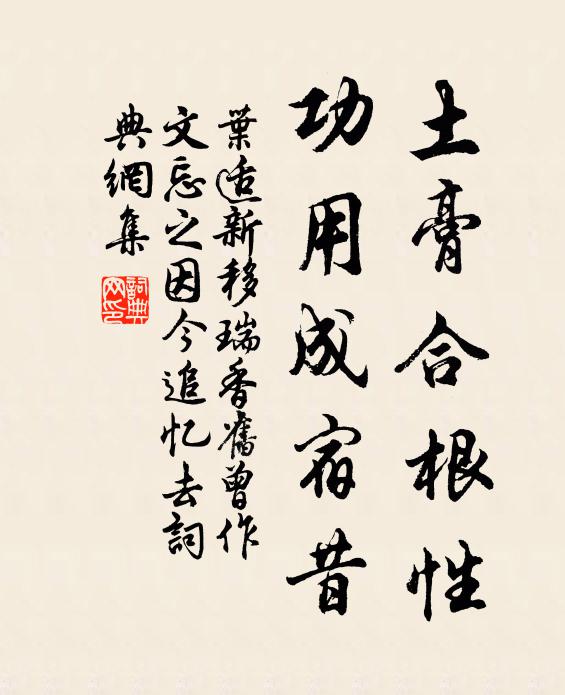 土膏合根性
功用成宿昔
葉适新移瑞香舊曾作
文忘之因今追忆去詞
典網集
詞典网印